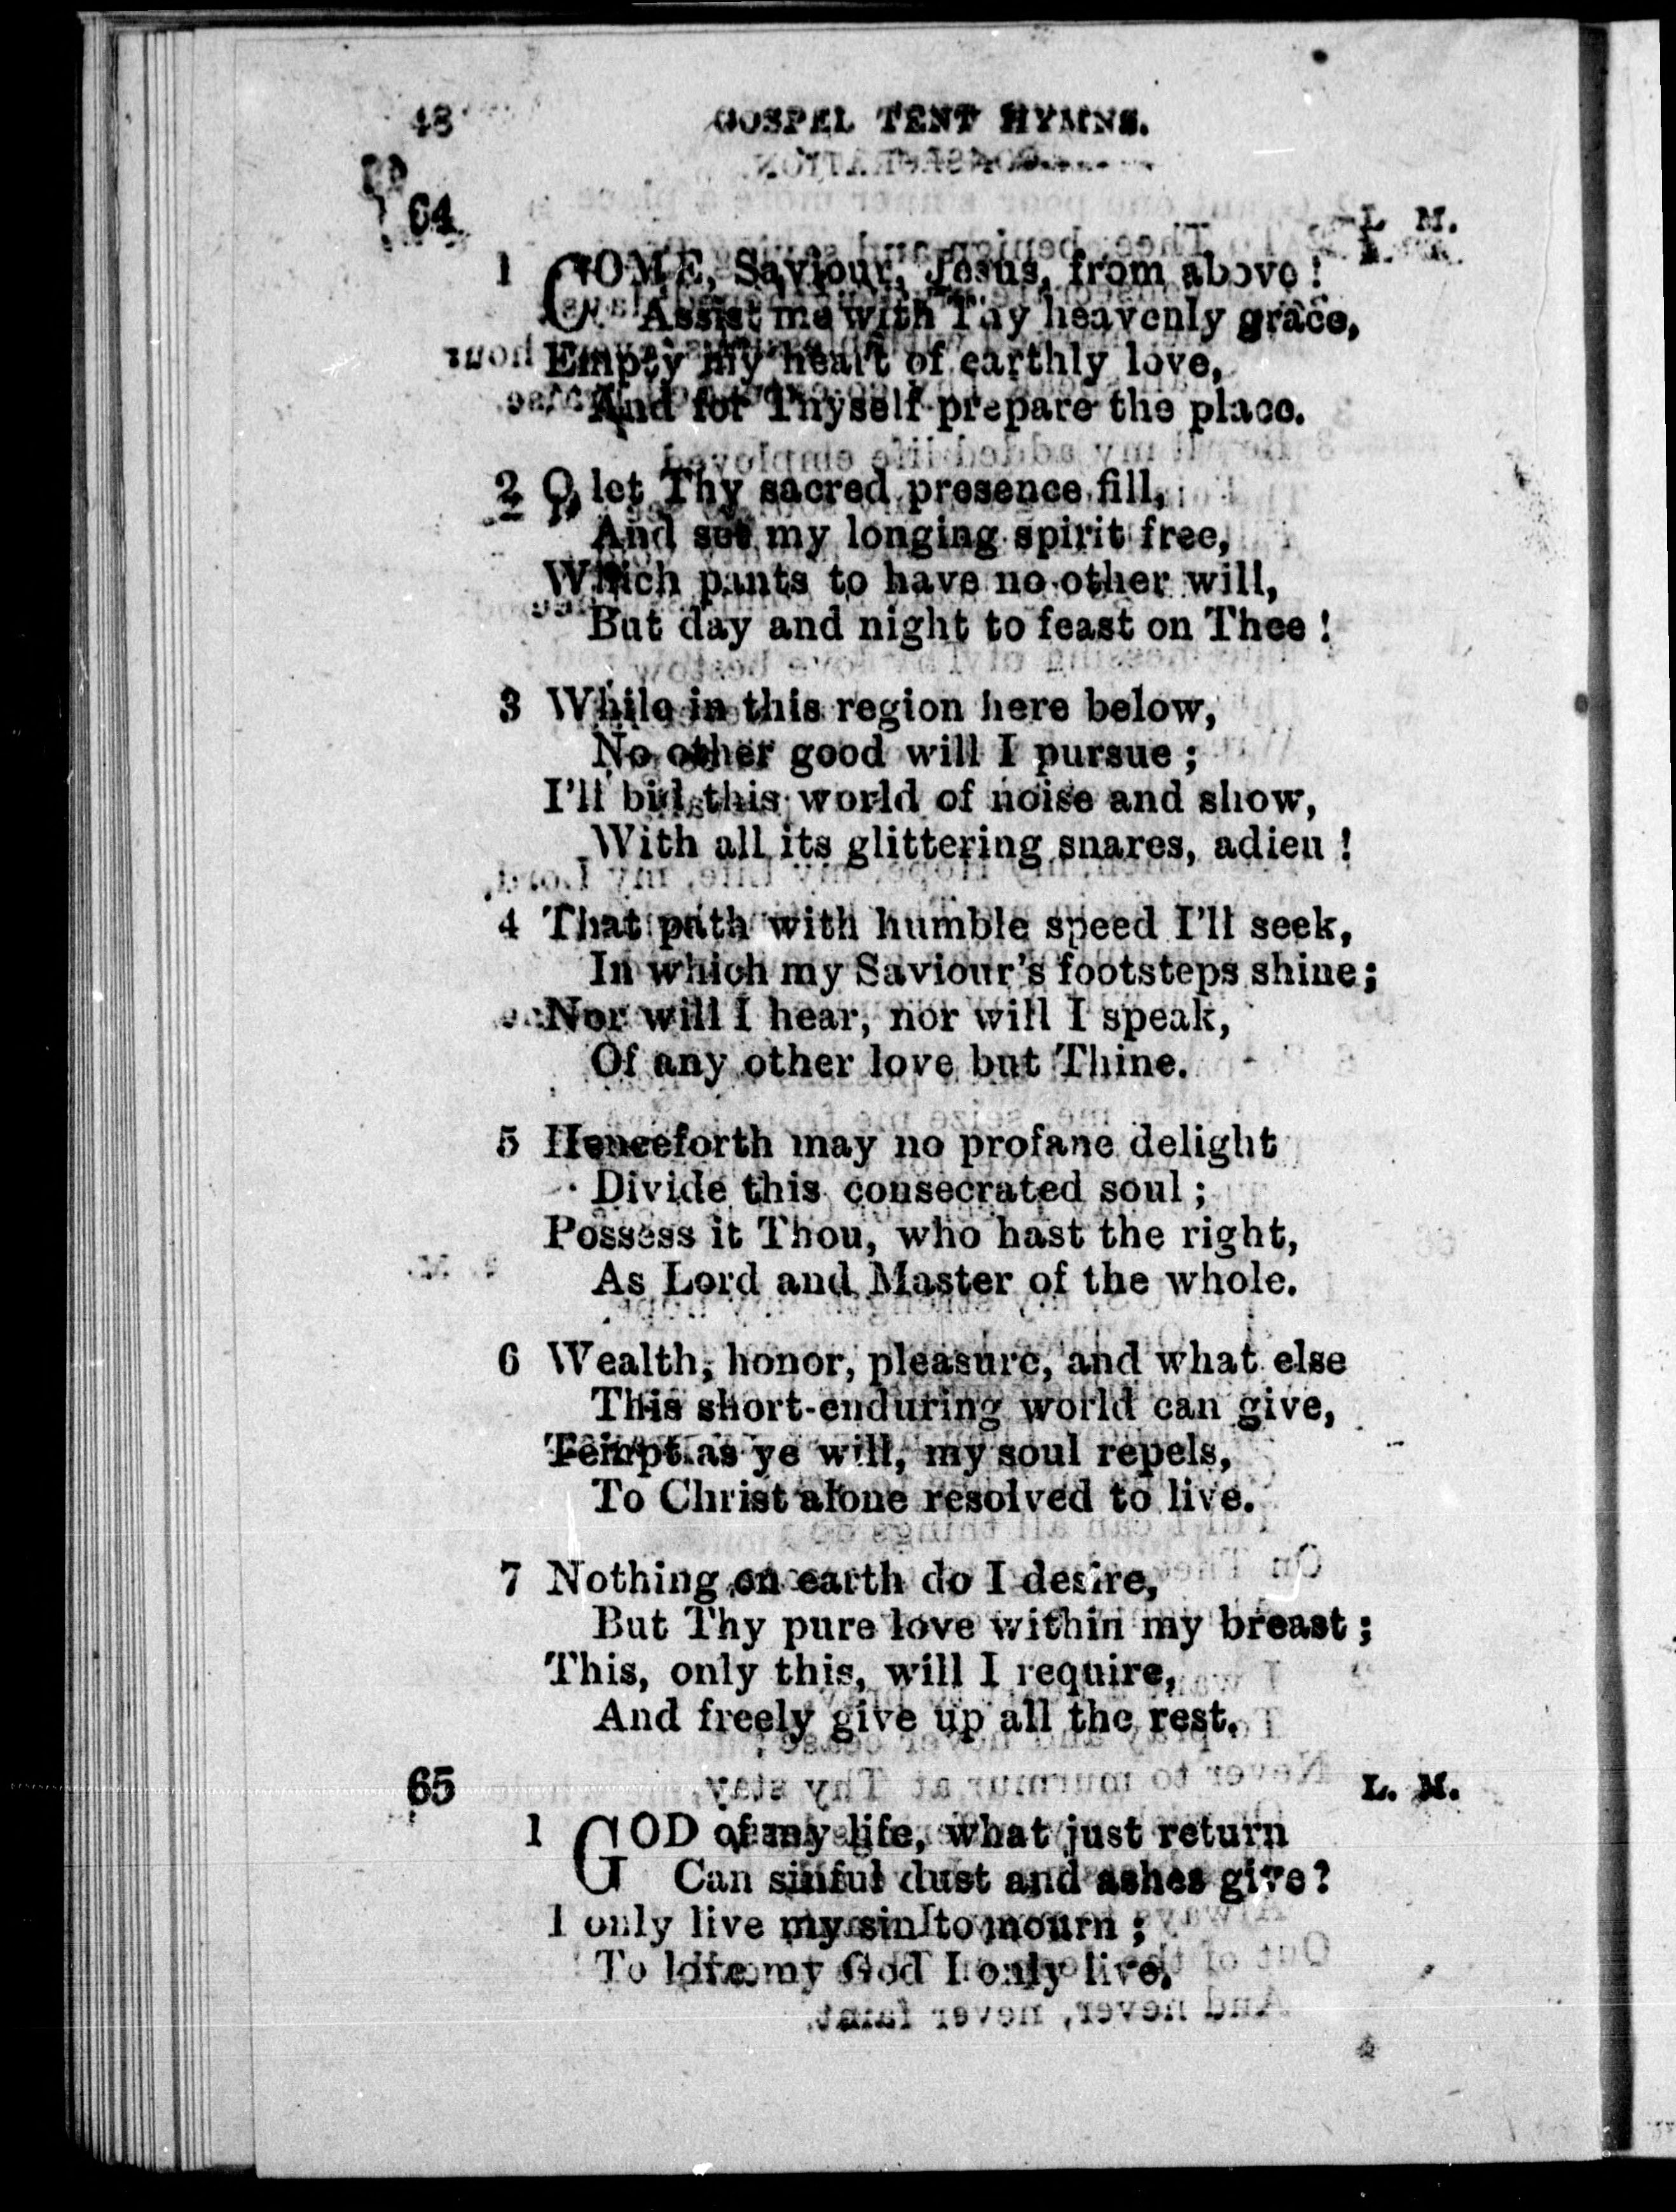 48
GOSPEL TENT HYMNS.
64
L. M.
1 COME, Saviour, Jesus, from above!
Assist me with Thy heavenly grace,
Empty my heart of earthly love,
And for Thyself prepare the place.
2 O, let Thy sacred presence fill,
And set my longing spirit free,
Which pants to have no other will,
But day and night to feast on Thee!
3 While in this region here below,
No other good will I pursue;
I'll bid this world of noise and show,
With all its glittering snares, adieu!
4 That path with humble speed I'll seek,
In which my Saviour's footsteps shine;
Nor will I hear, nor will I speak,
Of any other love but Thine.
5 Henceforth may no profane delight
Divide this consecrated soul;
Possess it Thou, who hast the right,
As Lord and Master of the whole.
6 Wealth, honor, pleasure, and what else
This short-enduring world can give,
Tempt as ye will, my soul repels,
To Christ alone resolved to live.
7 Nothing on earth do I desire,
But Thy pure love within my breast;
This, only this, will I require,
And freely give up all the rest.
65
L. M.
1 GOD of my life, what just return
Can sinful dust and ashes give?
I only live my sin to mourn;
To love my God I only live.